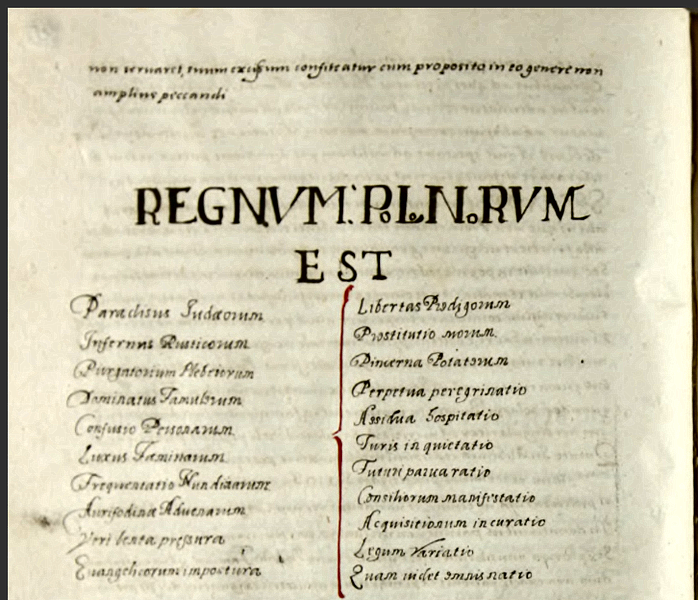 non servaret, suum excessum confiteatur cum proposito in eo genere non
amplius peccandi
REGNVM: POLNoRVM
EST
Paradisus Judæorum
Infernus Rusticorum
Purgatorium Plebeiorum
Dominatus Famulorum
Confusio Personarum
Luxus Fæminarum
Frequentatio Nundinarum
Aurifodina Advenarum
pressura
Evangelicorum impostura
Libertas Prodigorum
Prostitutio morum
Pincerna Potatorum
Perpetua peregrinatio
Assidua hospitatio
Juris inquietatio
Futuri parva ratio
Consiliorum manifestatio
Acquisitionum incuratio
Legum Variatio
Quam videt omnis natio